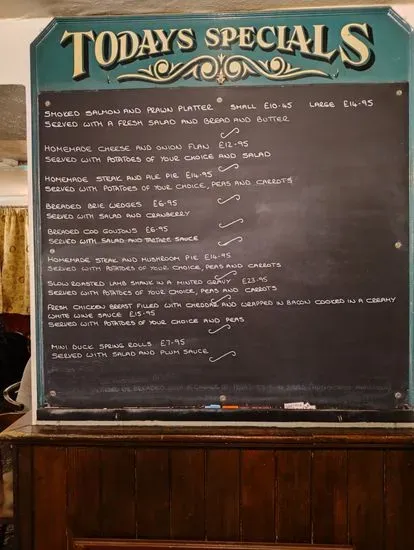 TODAYS SPECIALS
SMOKED SALMON AND PRAWN PLATTER SMALL £10·45 LARGE £14·95
SERVED WITH A FRESH SALAD AND BREAD AND BUTTER
HOMEMADE CHEESE AND ONION FLAN £12·95
SERVED WITH POTATOES OF YOUR CHOICE AND SALAD
HOMEMADE STEAK AND ALE PIE £14·95
SERVED WITH POTATOES OF YOUR CHOICE, PEAS AND CARROTS
BREADED BRIE WEDGES £6·95
SERVED WITH SALAD AND CRANBERRY
BREADED COD GOUJONS £6·95
SERVED WITH SALAD AND TARTARE SAUCE
HOMEMADE STEAK AND MUSHROOM PIE £14·95
SERVED WITH POTATOES OF YOUR CHOICE, PEAS AND CARROTS
SLOW ROASTED LAMB SHANK IN A MINTED GRAVY £23·95
SERVED WITH POTATOES OF YOUR CHOICE, PEAS AND CARROTS
FRESH CHICKEN BREAST FILLED WITH CHEDDAR AND WRAPPED IN BACON COOKED IN A CREAMY
WHITE WINE SAUCE £15·95
SERVED WITH POTATOES OF YOUR CHOICE AND PEAS
MINI DUCK SPRING ROLLS £7·95
SERVED WITH SALAD AND PLUM SAUCE